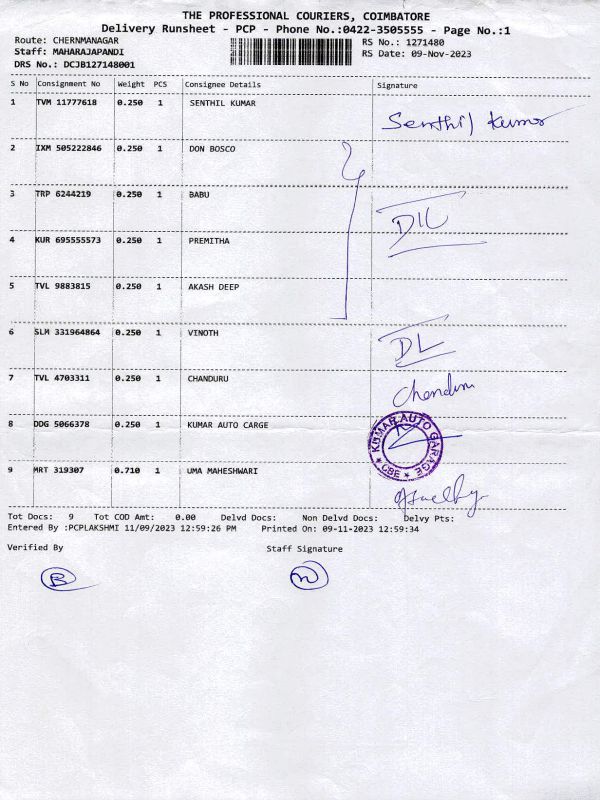 THE PROFESSIONAL COURIERS, COIMBATORE
Delivery Runsheet - PCP - Phone No.:0422-3505555 - Page No.:1
Route: CHERNMANAGAR RS No.: 1271480
Staff: MAHARAJAPANDI RS Date: 09-Nov-2023
DRS No.: DCJB127148001
S No Consignment No Weight PCS Consignee Details Signature
1 TVM 11777618 0.250 1 SENTHIL KUMAR Senthil Kumar
2 IXM 505222846 0.250 1 DON BOSCO
3 TRP 6244219 0.250 1 BABU
4 KUR 695555573 0.250 1 PREMITHA
5 TVL 9883815 0.250 1 AKASH DEEP
6 SLM 331964864 0.250 1 VINOTH DL
7 TVL 4703311 0.250 1 CHANDURU
8 DDG 5066378 0.250 1 KUMAR AUTO CARGE KUMAR AUTO GARAGE CBE
9 MRT 319307 0.710 1 UMA MAHESHWARI
Tot Docs: 9 Tot COD Amt: 0.00 Delvd Docs: Non Delvd Docs: Delvy Pts:
Entered By :PCPLAKSHMI 11/09/2023 12:59:26 PM Printed On: 09-11-2023 12:59:34
Verified By Staff Signature